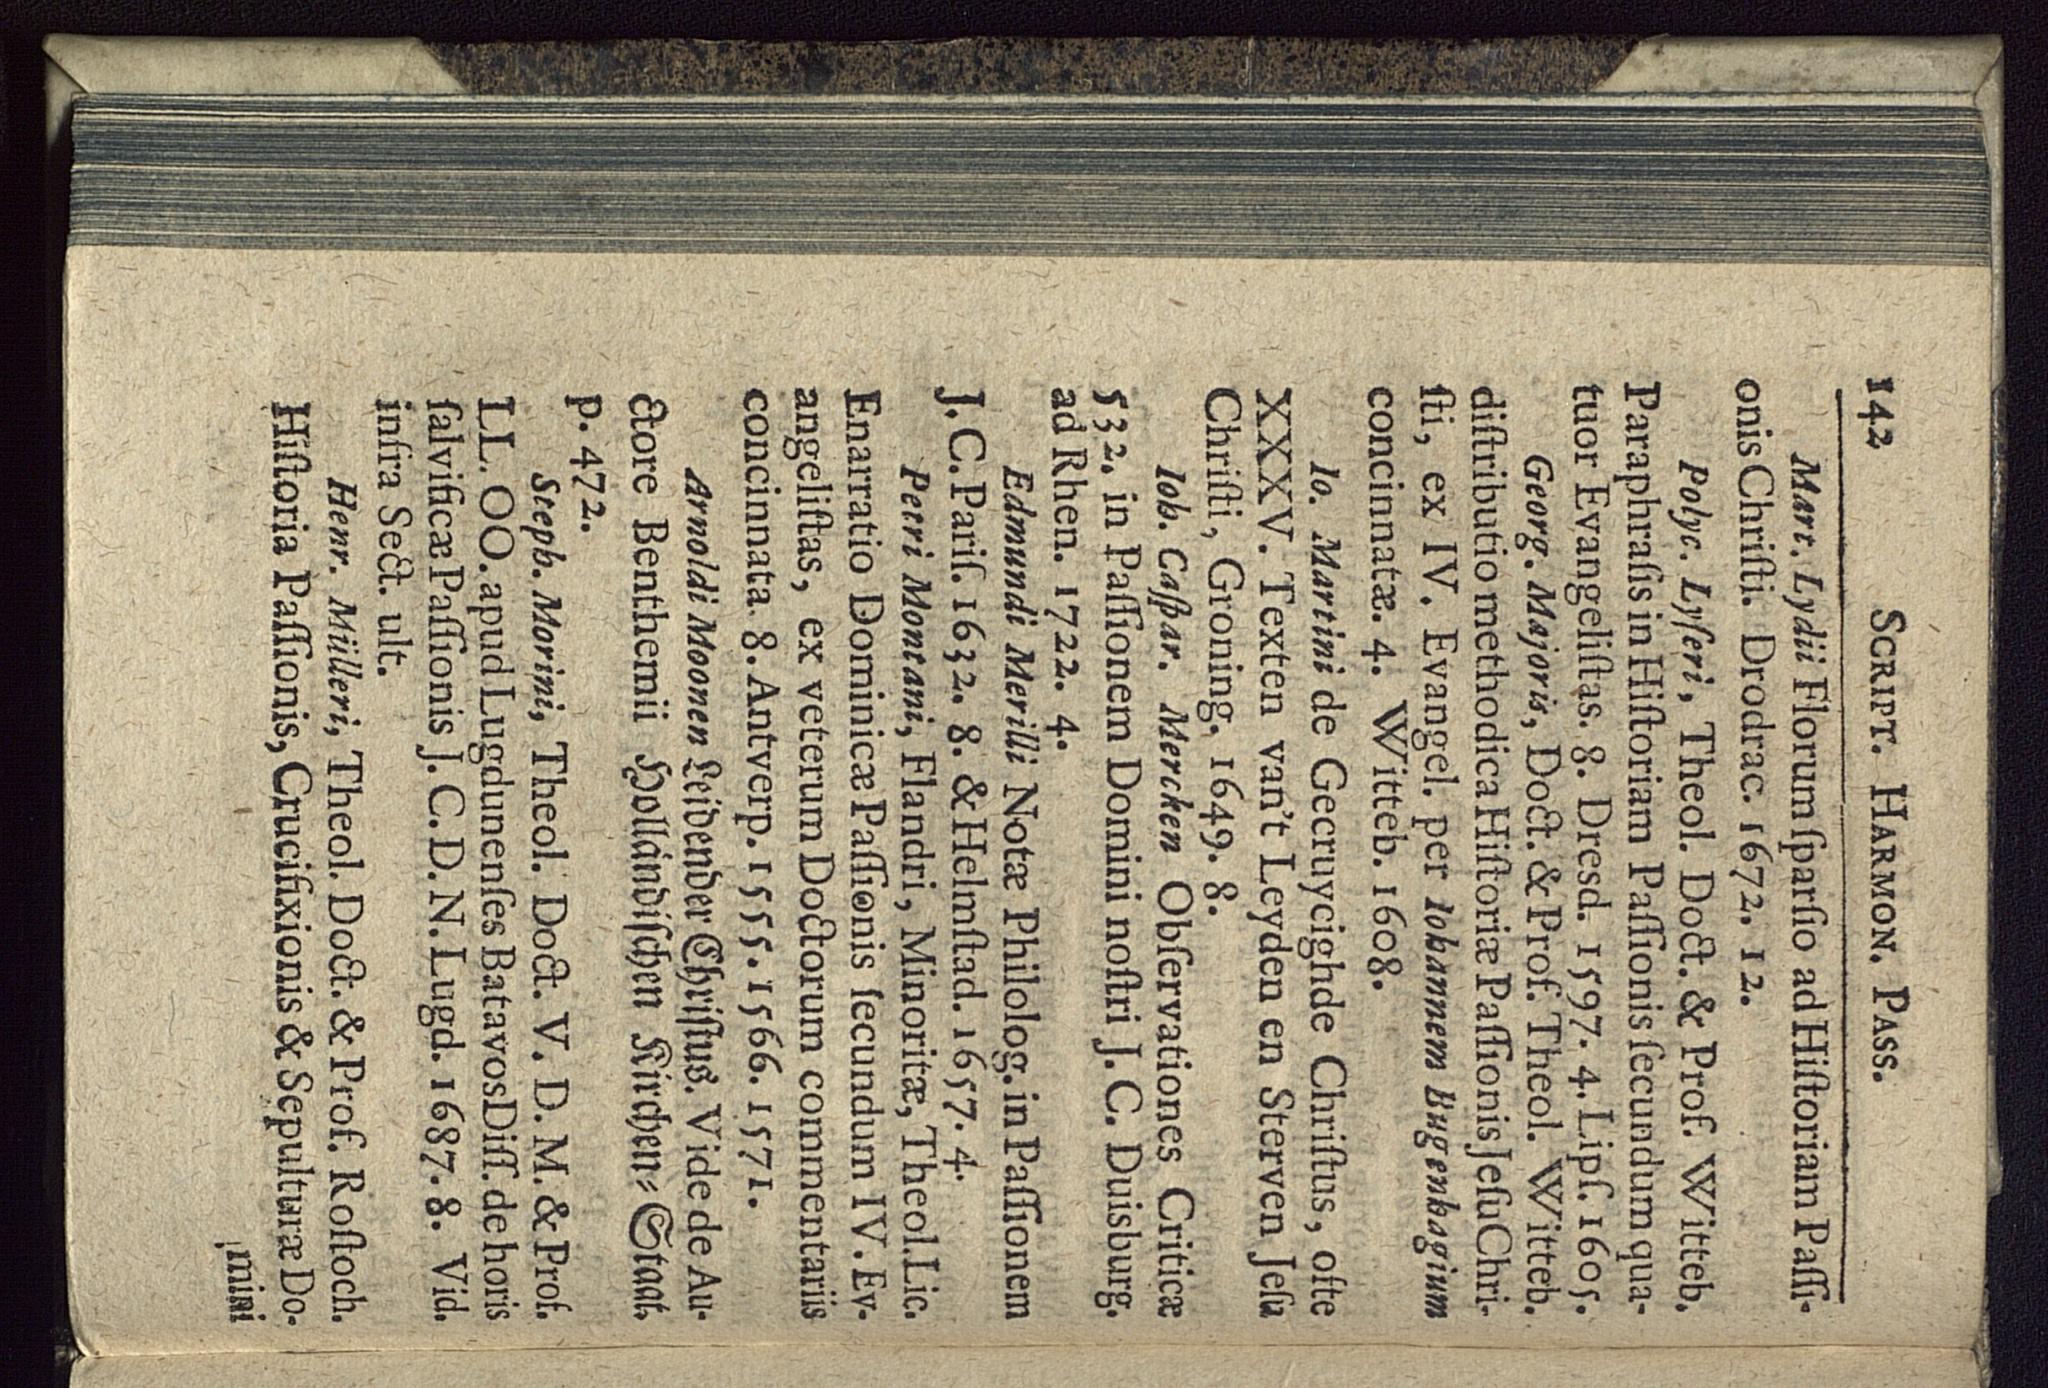 142 SCRIPT. HARMON. PASS.
Mart. Lydii Florum ſparſio ad Hiſtoriam Paſſi-
onis Chriſti. Drodrac. 1672. 12.
Polyc. Lyſeri, Theol. Doct. & Prof. Witteb.
Paraphraſis in Hiſtoriam Paſſionis ſecundum qua-
tuor Evangeliſtas. 8. Dresd. 1597. 4. Lipſ. 1605.
Georg. Majoris, Doct. & Prof. Theol. Witteb.
diſtributio methodica Hiſtoriæ Paſſionis Jeſu Chri-
ſti, ex IV. Evangel. per Iohannem Bugenhagium
concinnatæ. 4. Witteb. 1608.
Io. Martini de Gecruycighde Chriſtus, ofte
XXXV. Texten van't Leyden en Sterven Jeſu
Chriſti, Groning. 1649. 8.
Ioh. Caßar. Mercken Obſervationes Criticæ
532. in Paſſionem Domini noſtri J. C. Duisburg.
ad Rhen. 1722. 4.
Edmundi Merilli Notæ Philolog. in Paſſionem
J. C. Pariſ. 1632. 8. & Helmſtad. 1657. 4.
Petri Montani, Flandri, Minoritæ, Theol. Lic.
Enarratio Dominicæ Paſſionis ſecundum IV. Ev-
angeliſtas, ex veterum Doctorum commentariis
concinnata. 8. Antverp. 1555. 1566. 1571.
Arnoldi Moonen Leidender Chriſtus. Vide de Au-
ctore Benthemii Holländiſchen Kirchen-Staat.
p. 472.
Steph. Morini, Theol. Doct. V. D. M. & Prof.
LL. OO. apud Lugdunenſes Batavos Diſſ. de horis
ſalvificæ Paſſionis J. C. D. N. Lugd. 1687. 8. Vid.
infra Sect. ult.
Henr. Mülleri, Theol. Doct. & Prof. Roſtoch.
Hiſtoria Paſſionis, Crucifixionis & Sepulturæ Do-
mini